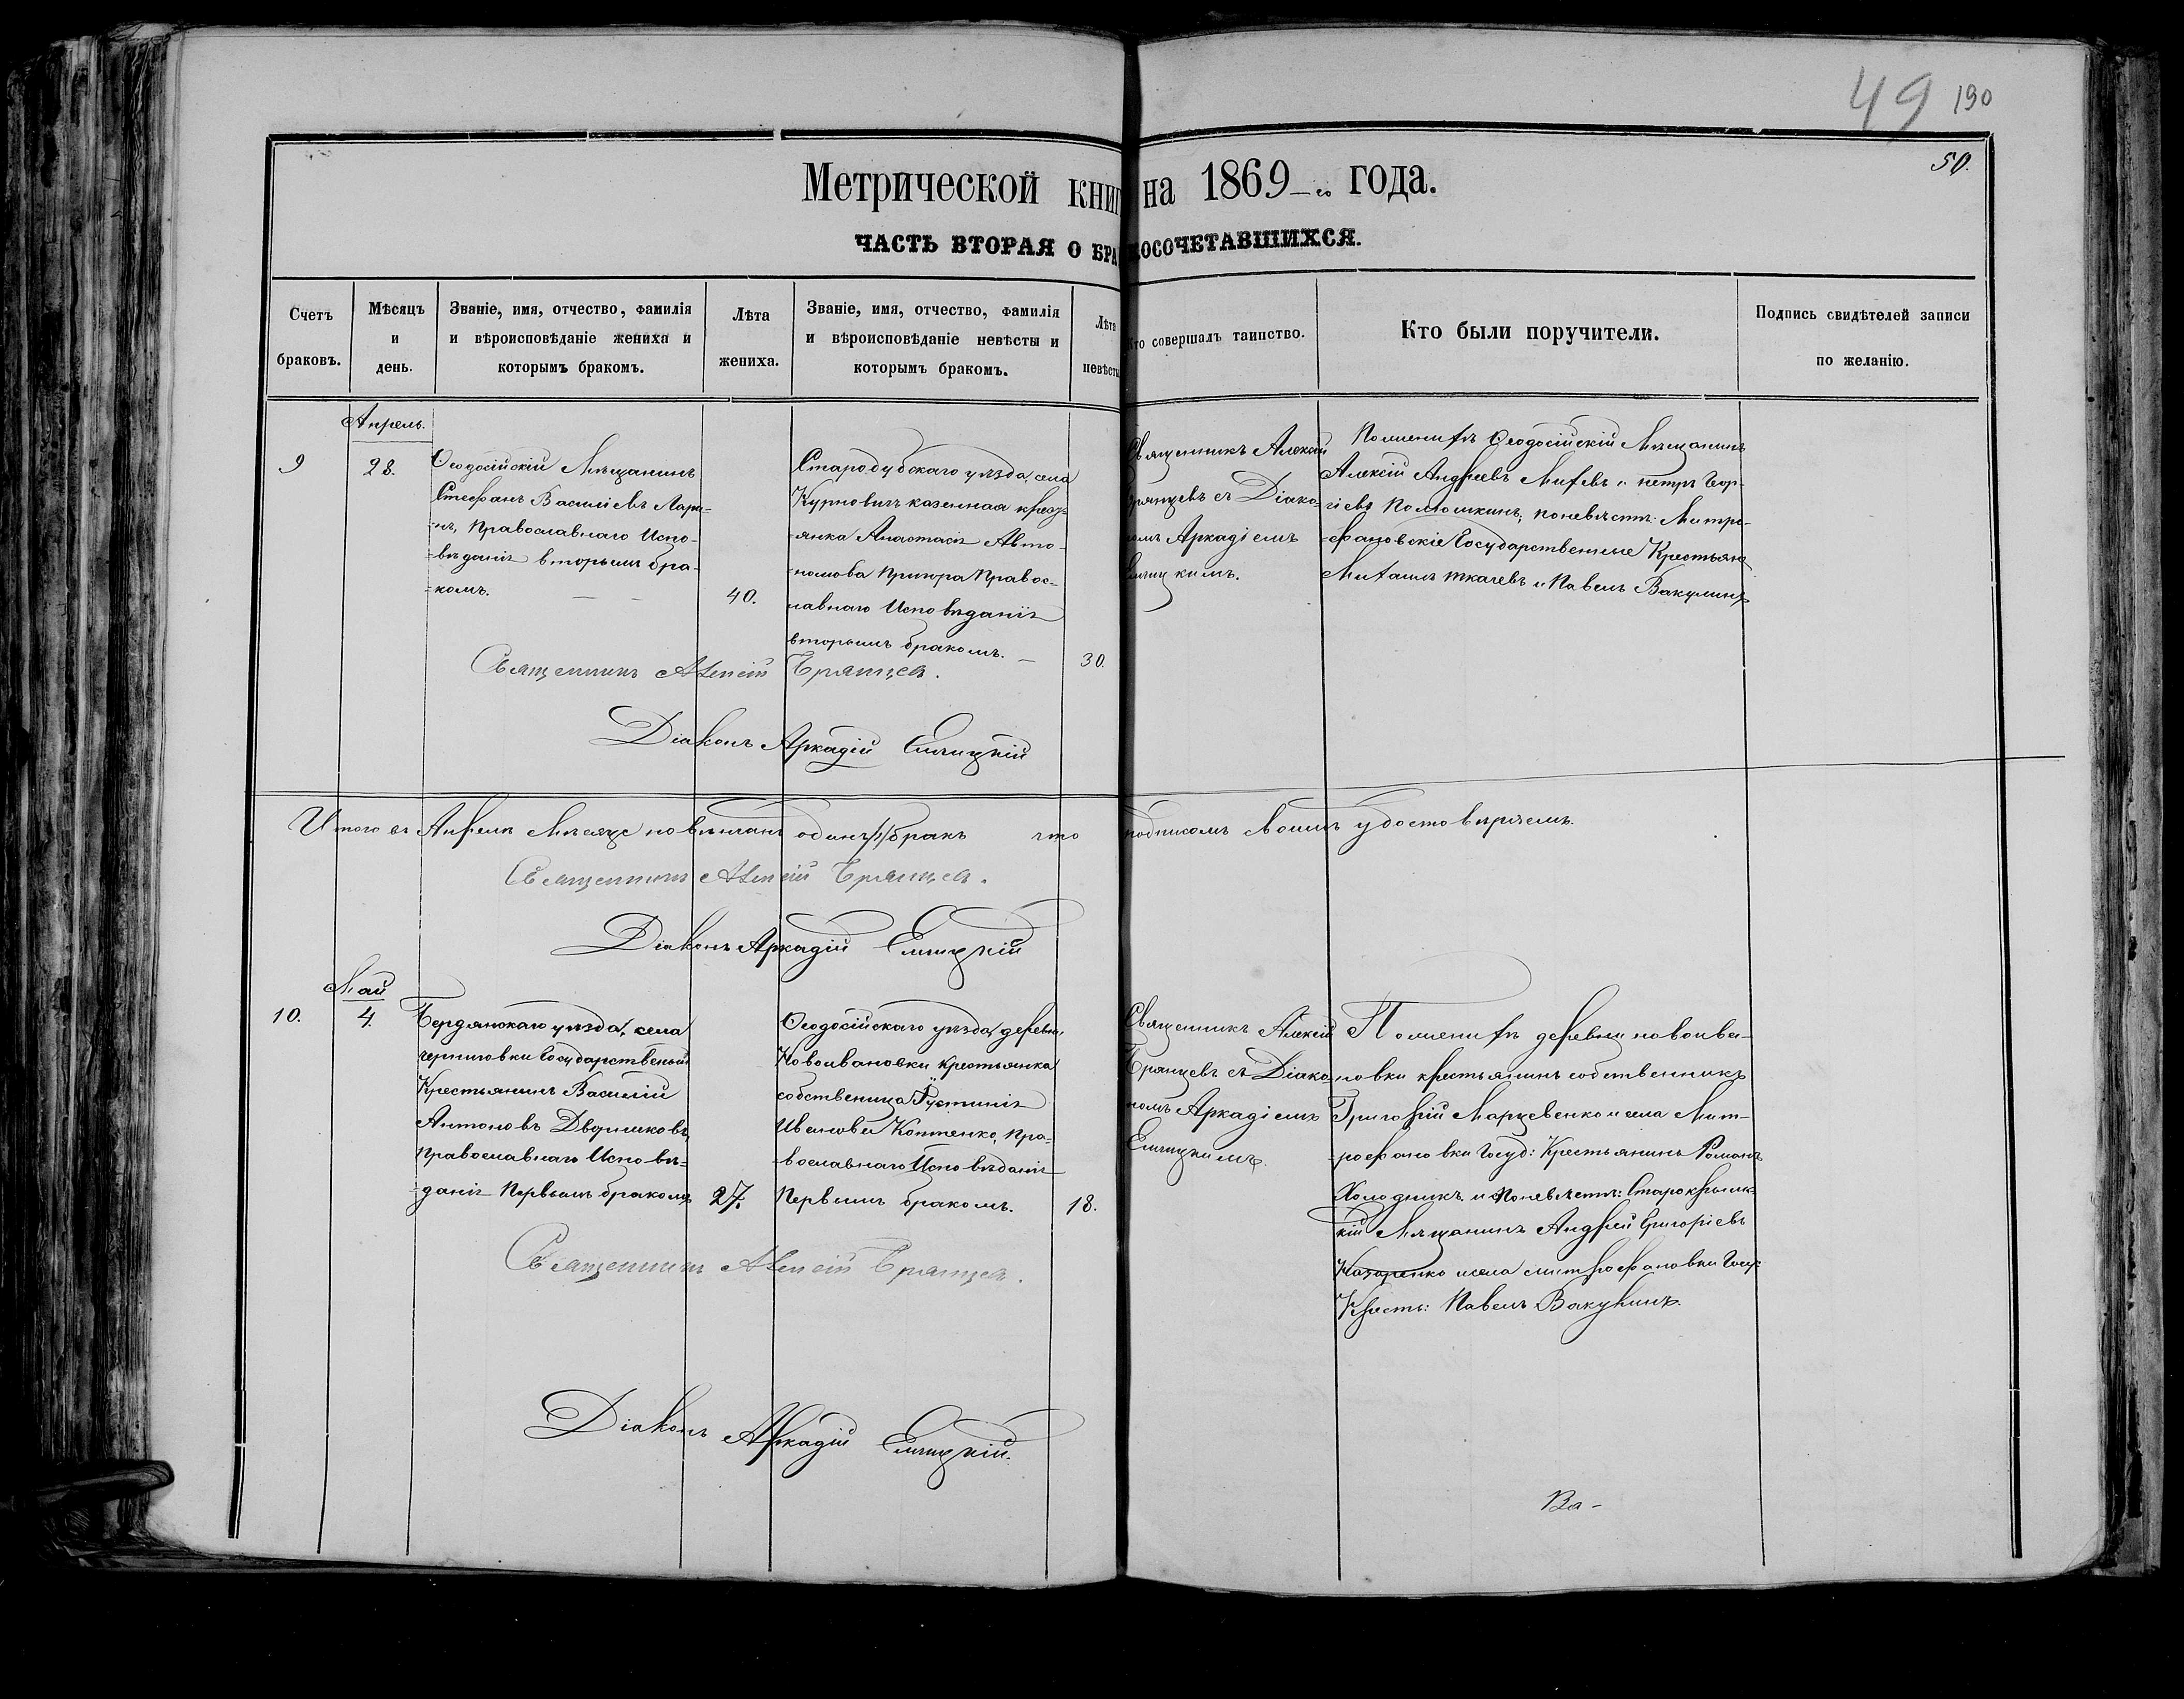 49 190
50.
Метрической книг на 1869-го года.
ЧАСТЬ ВТОРАЯ О БРАКОСОЧЕТАВШИХСЯ.
Счетъ браковъ.
Мѣсяцъ и день.
Званіе, имя, отчество, фамилія и вѣроисповѣданіе жениха и которымъ бракомъ.
Лѣта жениха.
Званіе, имя, отчество, фамилія и вѣроисповѣданіе невѣсты и которымъ бракомъ.
Лѣта невѣсты
Кто совершалъ таинство.
Кто были поручители.
Подпись свидѣтелей записи по желанію.
Апрель.
9
28.
Ѳеодосійскій Мѣщанинъ
Стефанъ Василіевъ Лари-
-нъ, Православнаго Испо-
-вѣданія вторымъ бра-
-комъ.
40.
Стародубскаго уѣзда, села
Курновичъ казенная крест-
-янка Анастасія Авто-
-номова Православ-
лавнаго Исповѣданія
вторымъ бракомъ.
30.
Священникъ Алексій
Брянцевъ съ Діако-
номъ Аркадіемъ
Емицкимъ.
По женихѣ Ѳеодосійскій Мѣщанинъ
Алексій Андреевъ Михевъ и петръ Геор-
гіевъ Поляшкинъ; по невѣстѣ: Митро-
-фановскіе Государственные Крестьяне
Михаилъ Ткачевъ и Павелъ Вакулинъ
Священникъ Алексій Брянцевъ.
Діаконъ Аркадій Емицкій
Итого въ Апрелѣ Мѣсяце повѣнчанъ одинъ /1/ бракъ что подписомъ своимъ удостовѣряемъ.
Священникъ Алексій Брянцевъ.
Діаконъ Аркадій Емицкій
Май
10.
4.
Бердянскаго уѣзда, села
черниговки Государственый
Крестьянинъ Василій
Антоновъ Дворниковъ
Православнаго Исповѣ-
-данія Первымъ бракомъ
27.
Ѳеодосійскаго уѣзда, деревни
Новоивановки крестьянка
собственица Іустинія
Иванова Коптенко, Пра-
-вославнаго Исповѣданія
Первымъ бракомъ.
18.
Священникъ Алексій
Брянцевъ съ Діако-
номъ Аркадіемъ
Емицкимъ.
По женихѣ деревни новоива-
новки крестьянинъ собственникъ
Григорій Марцевенко и села Мит-
-рофановки Госуд: Крестьянинъ Романъ
Холодникъ и По невѣстѣ: Старокрымс-
кій Мѣщанинъ Андрей Григоріевъ
Назаренко и села митрофановки Госу:
Кресть: Павелъ Вакулинъ.
Священникъ Алексій Брянцевъ.
Діаконъ Аркадій Емицкій.
Ва-